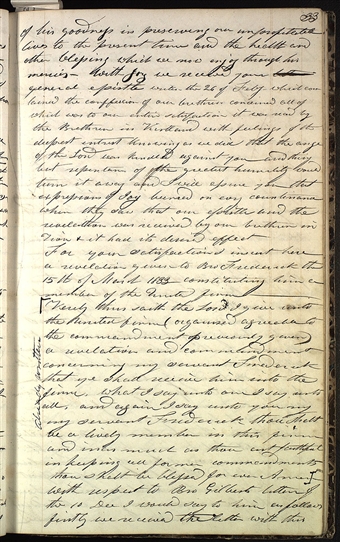 33
of his goodness in preserving our unprofitable
lives to the present time and the health and
other blessings which we now enjoy through his
mercies — With joy we received your
general epistle written the 26 of Feby which con
tained the confession of our brethren concerned all of
which was to our entire satisfaction it was read by
the Brethren in Kirtland with feelings of the
deepest interest knowing as we did that the anger
of the Lord was kindled against you and nothing
but repentance of the greatest humility would
turn it away and I will assure you that
expressions of Joy beamed on every countenance
when they saw that our epistle and the
revelation was received by our brethren in
Zion & it had its desired effect
For your satisfaction I insert here
a revelation given to Bro Frederick the
15th of March 1833 constituting him a
member of the United firm
Verily thus saith the Lord I give unto
the United firm (organised agreeable to
the commandment previously given)
a revelation and commandment
concerning my servant Frederick
that ye shall receive him into the
firm. what I say unto one I say unto
all, and again I say unto you my
my servant Frederick thou shalt
be a lively member in this firm
and inasmuch as thou art faithful
in keeping all former commandments
thou shalt be blessed for ever Amen
With respect to Bro Gilberts letter of
the 10 Dec I would say to him as follows
firstly we received the letter with this
already written